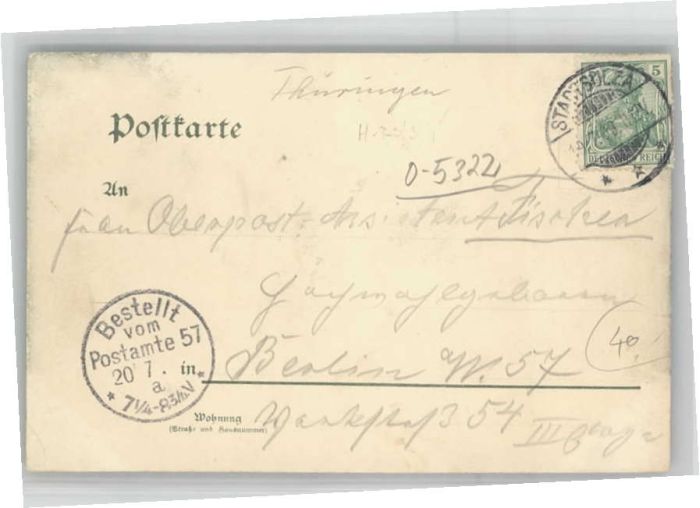 Thüringen
5
STADTSULZA
DEUTSCHES REICH
Postkarte
0-5322
An
Frau Oberpost-Assistent Fischer
Berlin W. 57
40
Bestellt
vom
Postamte 57
20 7.
a
7¼-8¾N
in
Wohnung
(Straße und Hausnummer)
54
III